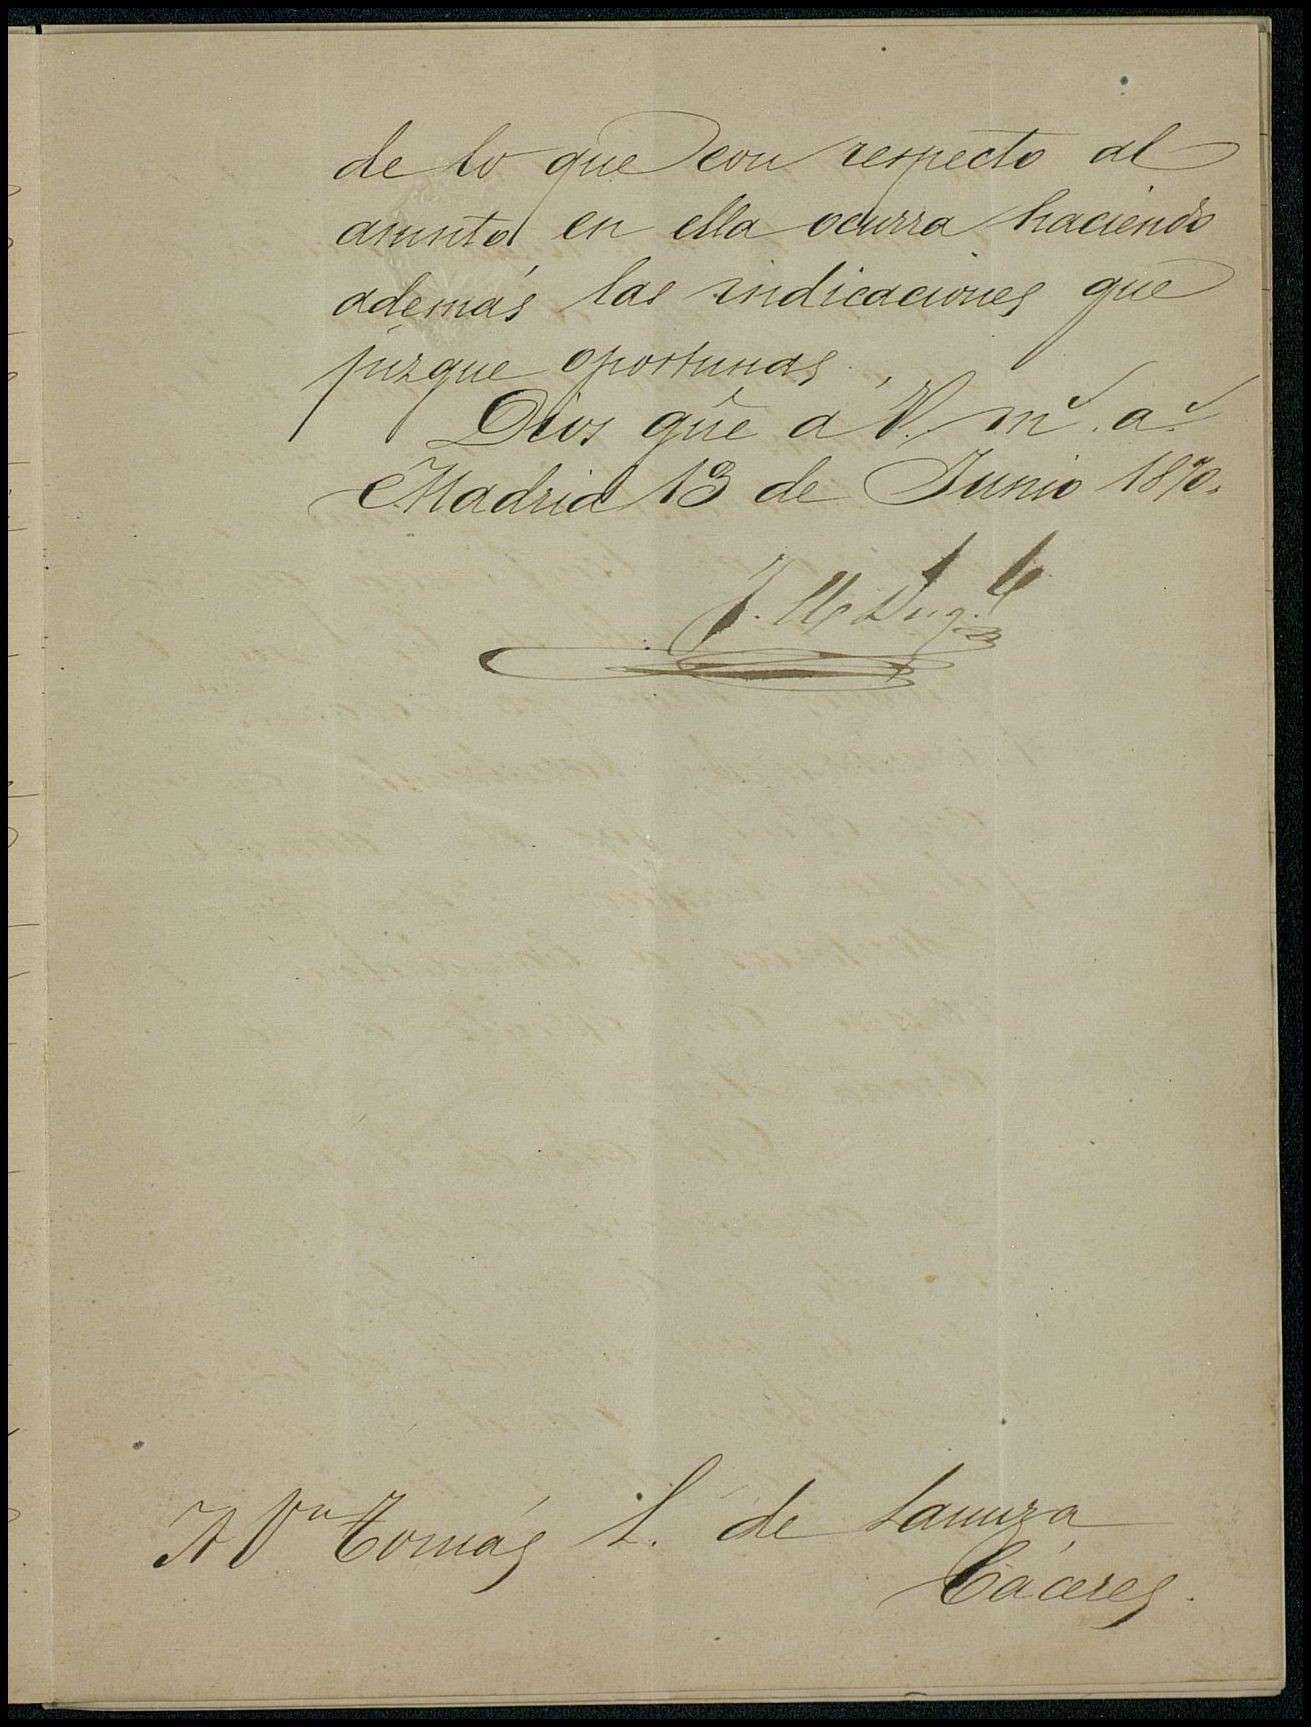 de lo que con respecto al
asunto en ella ocurra haciendo
además las indicaciones que
júzgue oportunas.
Dios gũe a V. m.ˢ a.ˢ
Madrid 13 de Junio 1870.
J. M.
A Dⁿ Tomás L. de Lanuza
Cáceres.